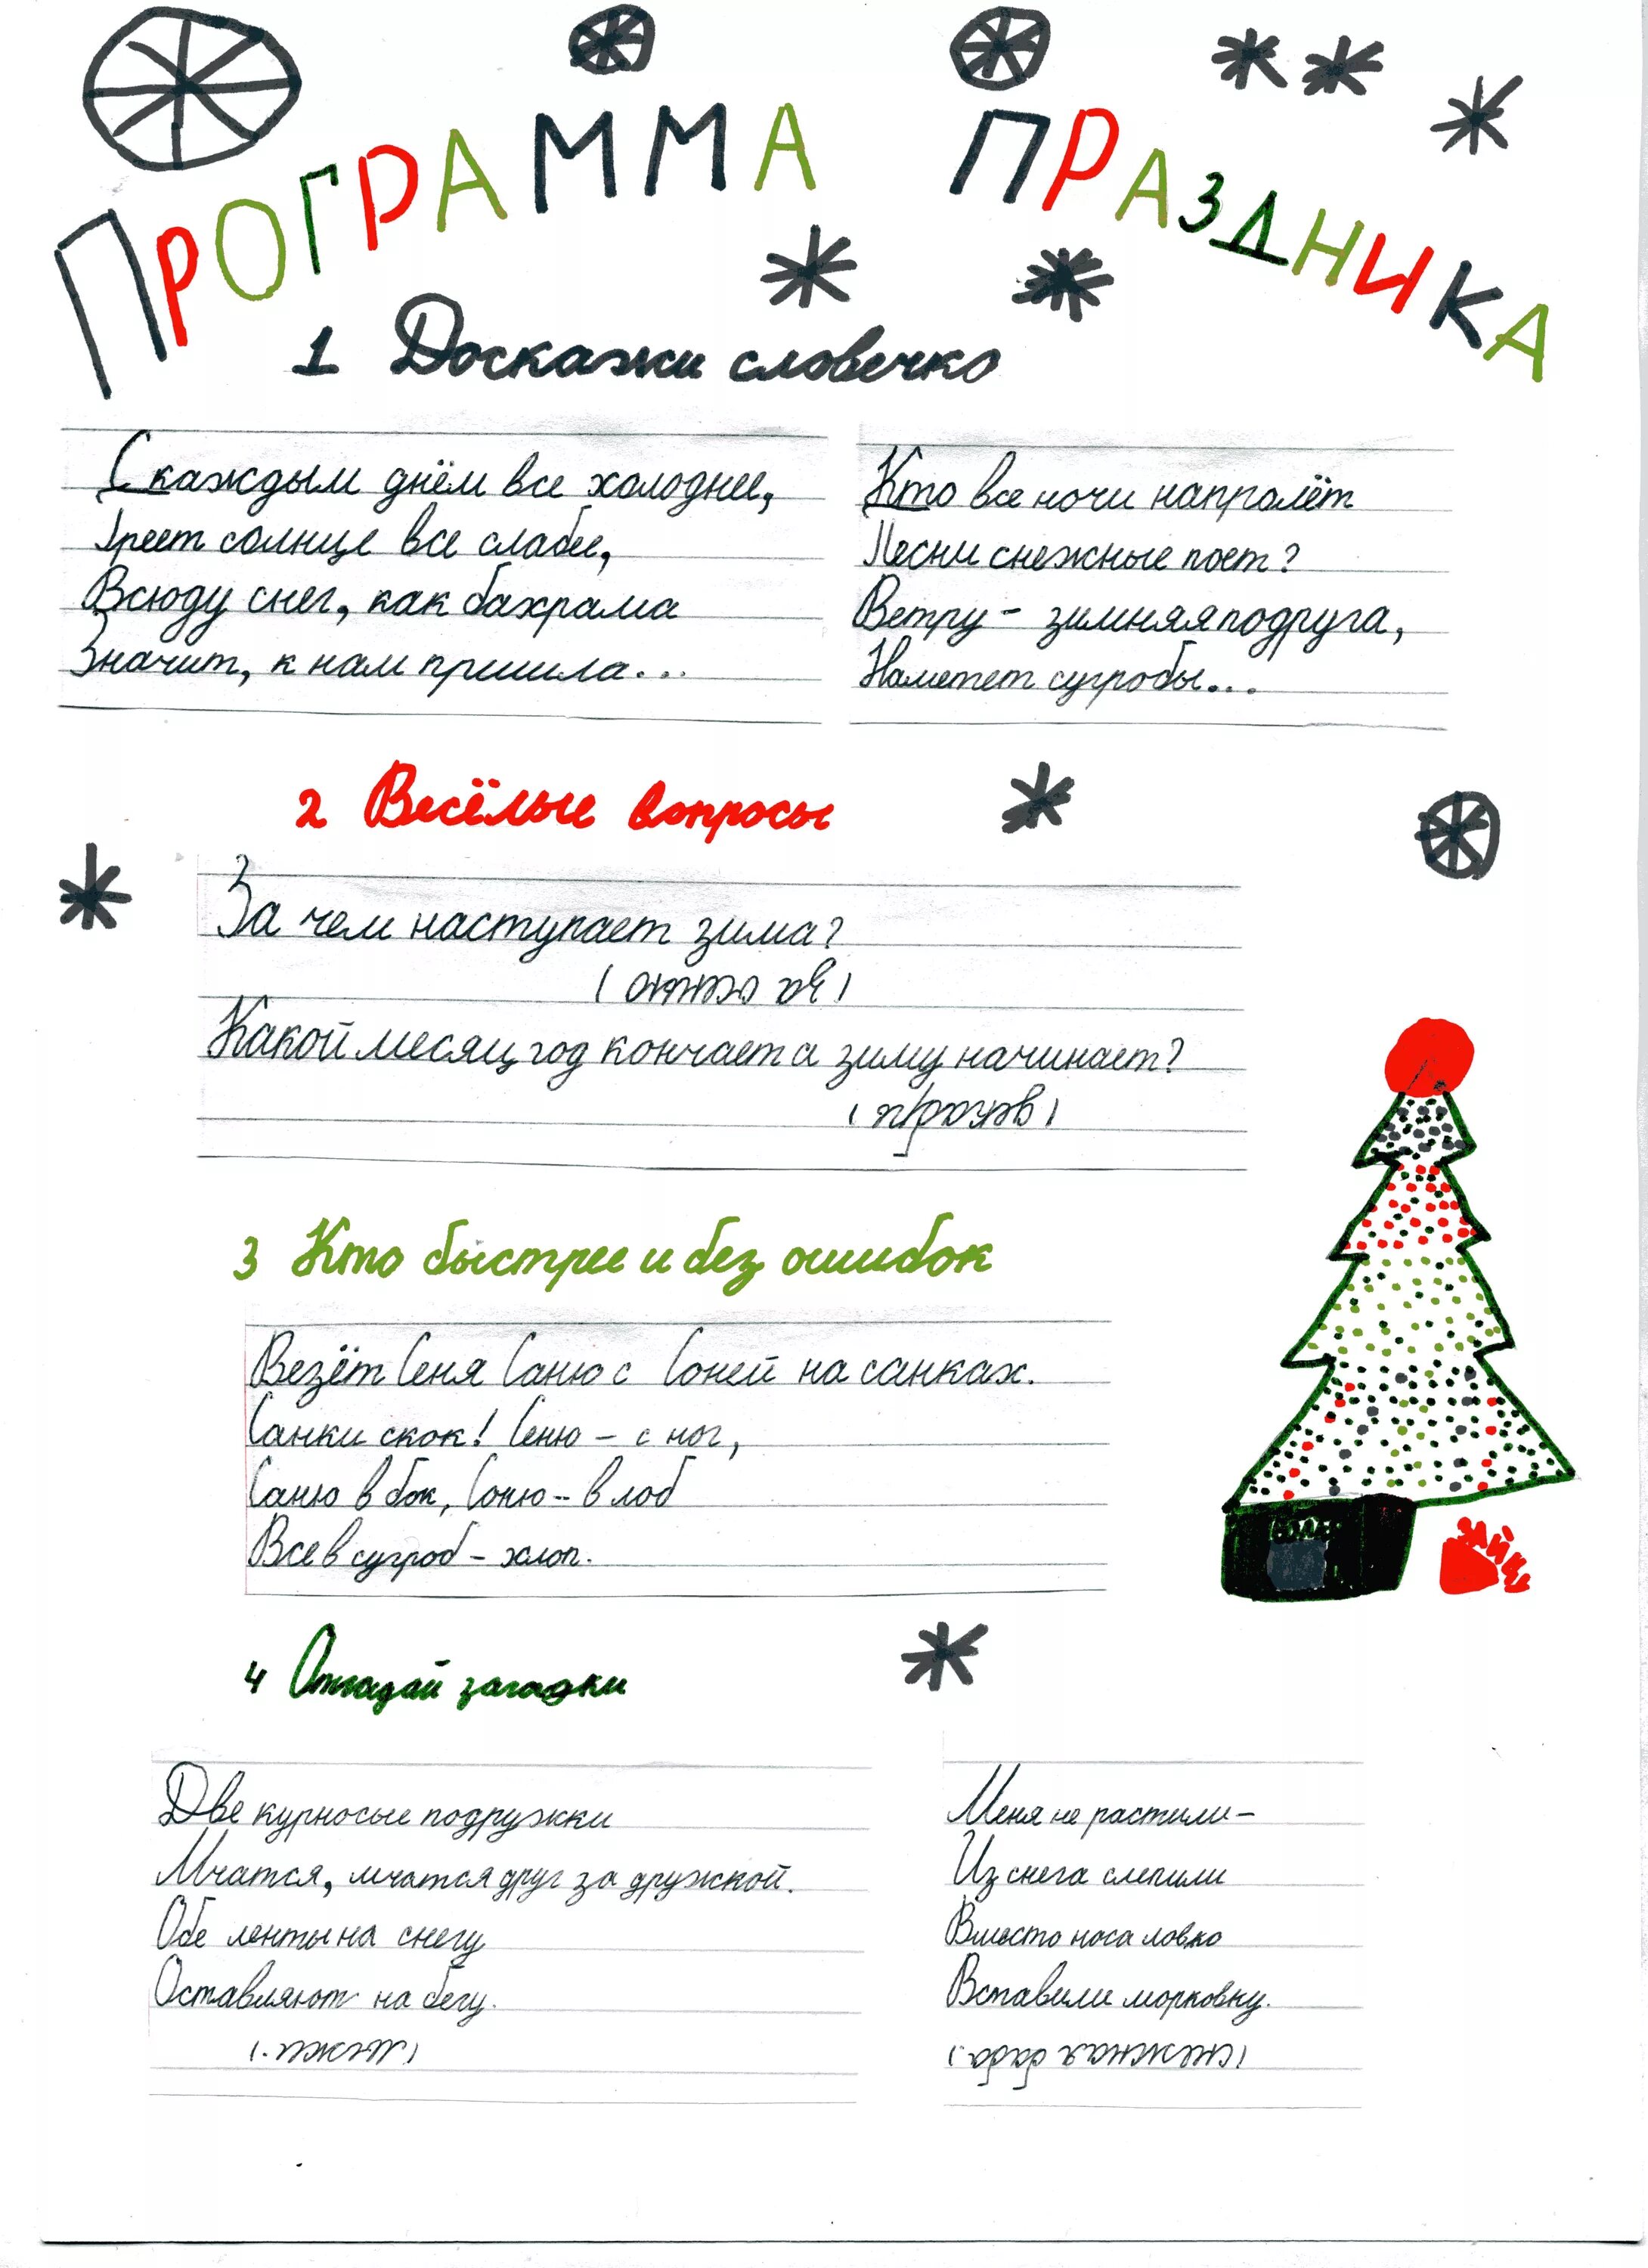 ПРОГРАММА ПРАЗДНИКА
1 Доскажи словечко
С каждым днём все холоднее,
Греет солнце все слабее,
Всюду снег, как бахрама
Значит, к нам пришла...
Кто все ночи напролёт
Песни снежные поет?
Ветру - зимняя подруга,
Наметет сугробы...
2 Весёлые вопросы
За чем наступает зима?
(за осенью)
Какой месяц год кончает а зиму начинает?
(декабрь)
3 Кто быстрее и без ошибок
Везёт Сеня Саню с Соней на санках.
Санки скок! Сеню - с ног,
Саню в бок, Соню - в лоб
Все в сугроб - хлоп.
4 Отгадай загадки
Две курносые подружки
Мчатся, мчатся друг за дружкой.
Обе ленты на снегу
Оставляют на бегу.
(лыжи.)
Меня не растили -
Из снега слепили
Вместо носа ловко
Вставили морковку.
(снежная баба.)